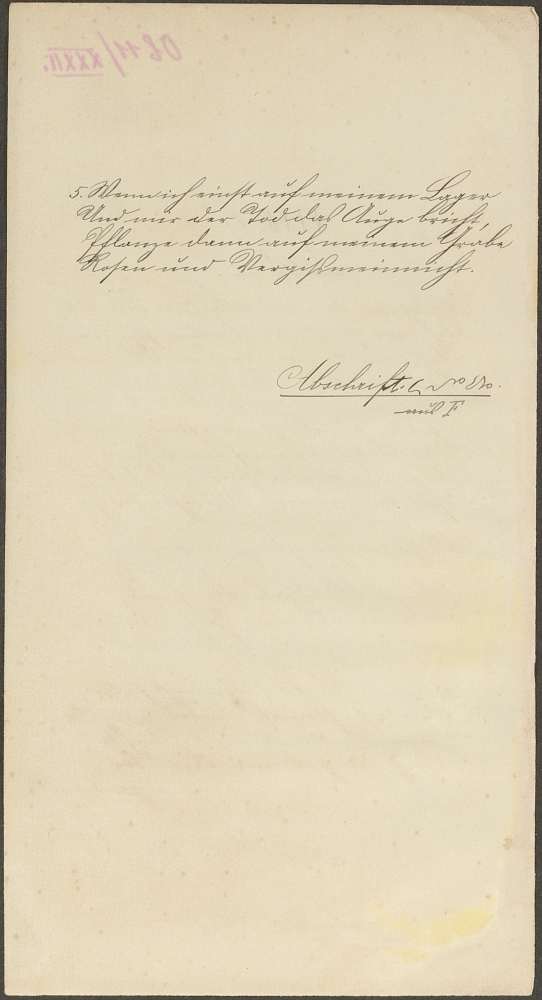 5. Wenn ich einst auf meinem Lager
Und mir der Tod das Auge bricht,
Pflanze dann auf meinem Grabe
Rosen und Vergißmeinnicht.
Abschrift. No
aus F